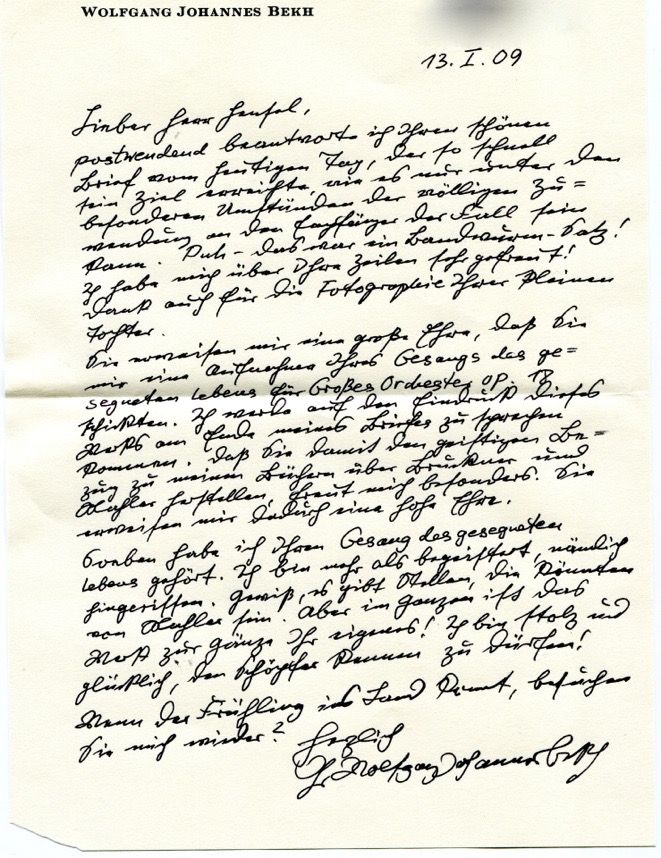 WOLFGANG JOHANNES BEKH
13. I. 09
Lieber Herr Hensel,
postwendend beantworte ich Ihren schönen
Brief vom heutigen Tag, der so schnell
sein Ziel erreichte, wie es nur unter den
besonderen Umständen der völligen Zu=
wendung an den Empfänger der Fall sein
kann. Puh – das war ein Bandwurm-Satz!
Ich habe mich über Ihre Zeilen sehr gefreut!
Dank auch für die Fotographie Ihrer kleinen
Tochter.
Sie erweisen mir eine große Ehre, daß Sie
mir eine Aufnahme Ihres Gesangs des ge=
segneten Lebens für Großes Orchester, op. 18
schickten. Ich werde auf den Eindruck dieses
Werks am Ende meines Briefes zu sprechen
kommen. Daß Sie damit den geistigen Be=
zug zu meinen Büchern über Bruckner und
Mahler herstellen, freut mich besonders. Sie
erweisen mir dadurch eine hohe Ehre.
Soeben habe ich Ihren Gesang des gesegneten
Lebens gehört. Ich bin mehr als begeistert, nämlich
hingerissen. Gewiß, es gibt Stellen, die könnten
von Mahler sein. Aber im ganzen ist das
Werk zur Gänze Ihr eigenes! Ich bin stolz und
glücklich, den Schöpfer kennen zu dürfen!
Wenn der Frühling ins Land kommt, besuchen
Sie mich wieder?
Herzlich
Ihr Wolfgang Johannes Bekh